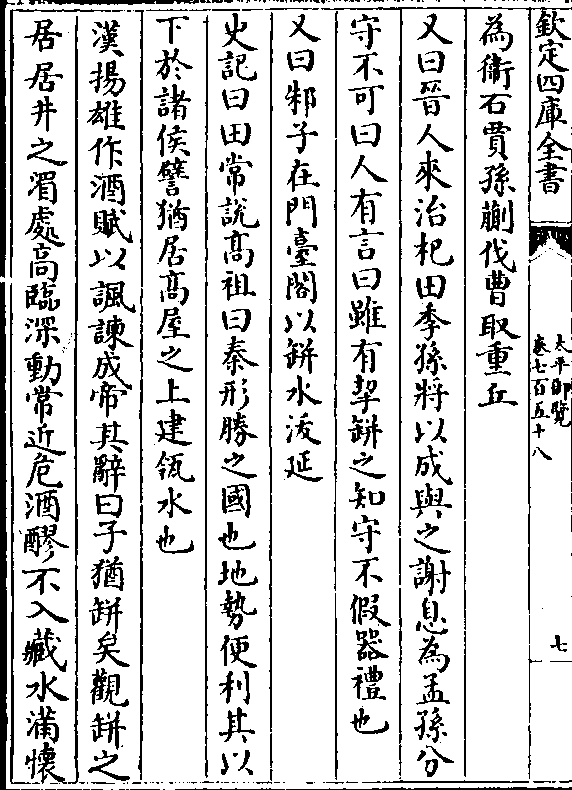 欽定四庫全書
太平御覽
卷七百五十八
七
為衛石買孫蒯伐曹取重丘
又曰晉人來治杞田季孫將以成與之謝息為孟孫分
守不可曰人有言曰雖有挈缾之知守不假器禮也
又曰邾子在門臺閣以缾水沃延
史記曰田常說髙祖曰秦形勝之國也地勢便利其以
下於諸侯譬猶居髙屋之上建瓴水也
漢揚雄作酒賦以諷諫成帝其辭曰子猶缾矣觀缾之
居居井之湄處髙臨深動常近危酒醪不入藏水滿懷